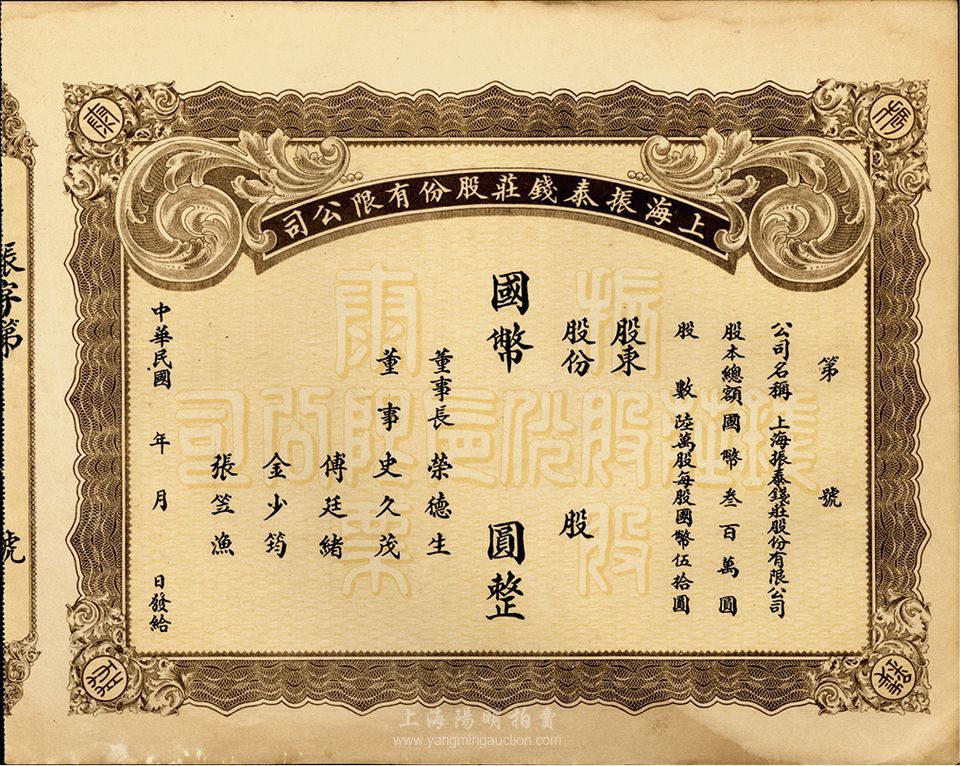 上海振泰錢莊股份有限公司
第 號
公司名稱 上海振泰錢莊股份有限公司
股本總額國幣叁百萬圓
股數 陸萬股每股國幣伍拾圓
股東
股份 股
國幣 圓整
董事長 榮德生
董事 史久茂
傅廷緒
金少筠
張笠漁
中華民國 年 月 日發給
振字第 號
上海陽明拍賣
www.yangmingauction.com